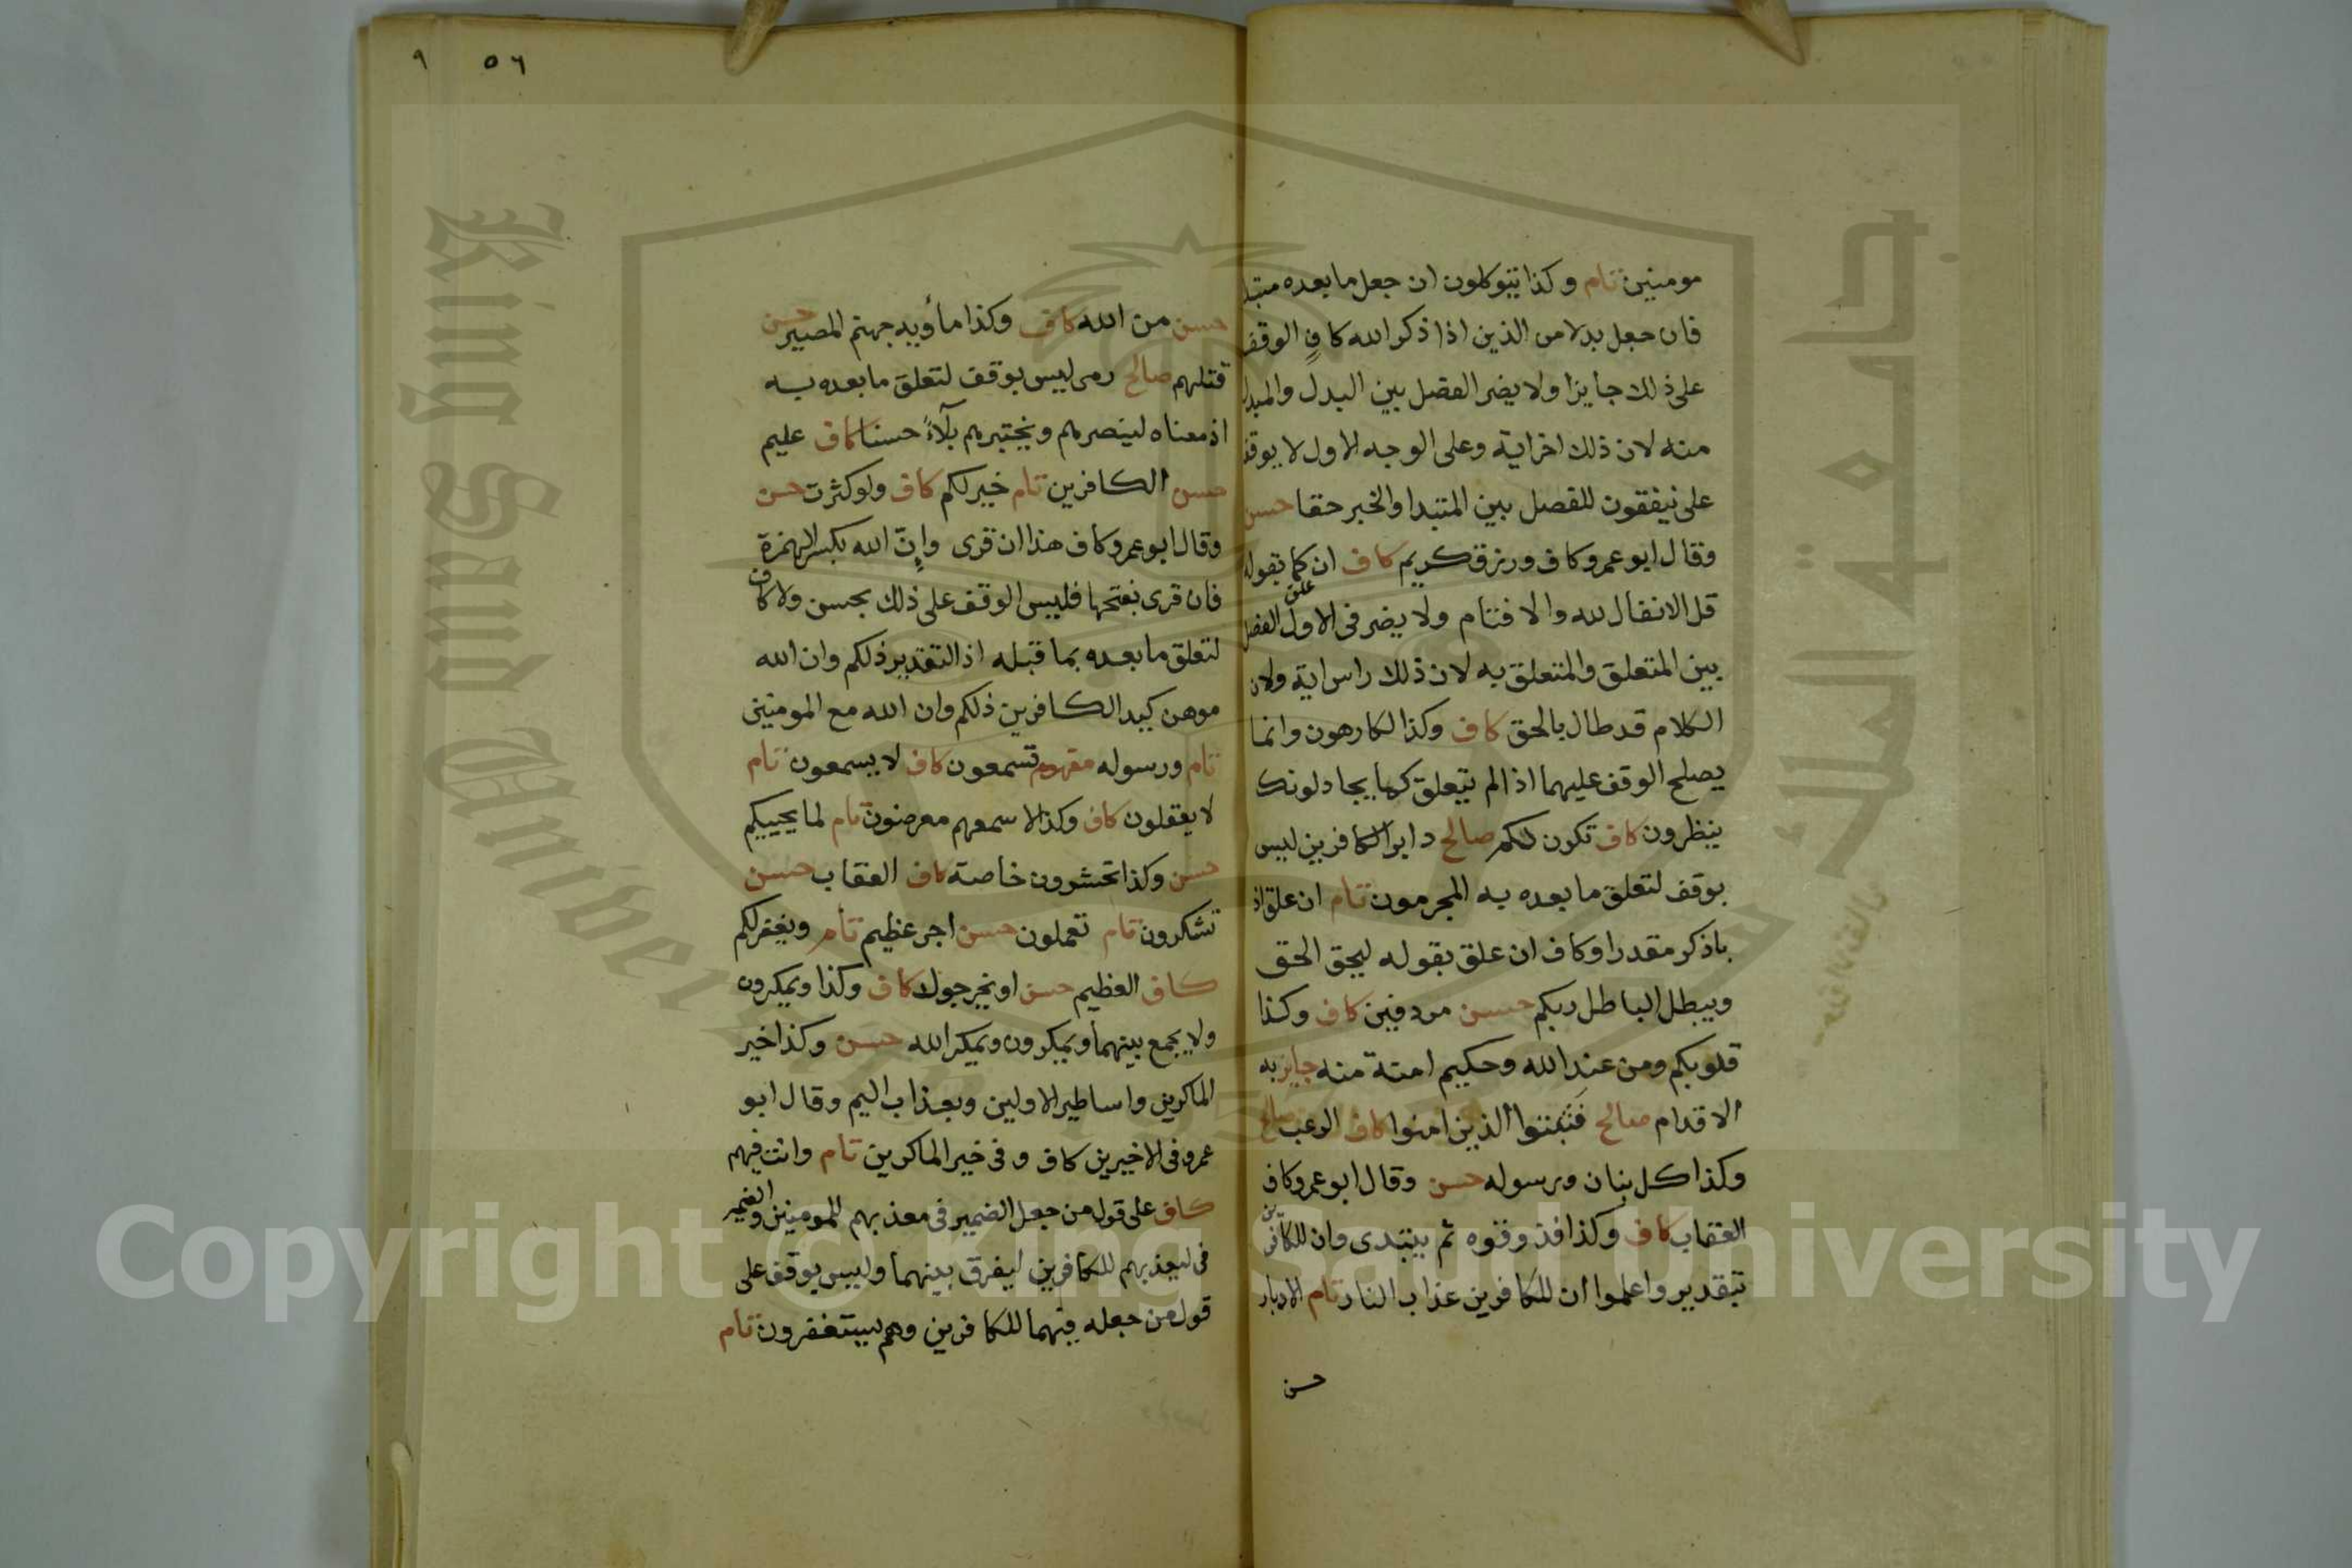 مومنين تام وكذا يتوكلون ان جعل ما بعده مبتدا
فان جعل بدلا من الذين اذا ذكر الله كاف الوقف
على ذلك جايزا ولا يضر الفصل بين البدل والمبدل
منه لان ذلك اخر اية وعلى الوجه الاول لا يوقف
على ينفقون للفصل بين المتبدا والخبر حقا حسن
وقال ابو عمرو كاف ورزق كريم كاف ان علق كما بقوله
قل الانفال لله والا فتام ولا يضر فى الاول الفصل
بين المتعلق والمتعلق به لان ذلك راس اية ولان
الكلام قد طال بالحق كاف وكذا لكارهون وانما
يصلح الوقف عليهما اذا لم يتعلق كما بيجادلونك
ينظرون كاف تكون لكم صالح دابر الكافرين ليس
بوقف لتعلق ما بعده به المجرمون تام ان علق اذ
باذكر مقدرا وكاف ان علق بقوله ليحق الحق
ويبطل الباطل ربكم حسن مردفين كاف وكذا
قلوبكم ومن عند الله وحكيم امنة منه جايز به
الاقدام صالح فَثَبتوا الذين امنوا كاف الرعب صالح
وكذا كل بنان ورسوله حسن وقال ابو عمرو كاف
العقاب كاف وكذا فذوقوه ثم يبتدى وان للكافرين
بتقدير واعلموا ان للكافرين عذاب النار تام الادبار
حسن
٥٦ ٩
حسن من الله كاف وكذا مأويه جهنم المصير حسن
قتلهم صالح رمى ليس بوقف لتعلق ما بعده به
اذ معناه لينصرهم ويختبرهم بلآءً حسنا كاف عليم
حسن الكافرين تام خير لكم كاف ولو كثرت حسن
وقال ابو عمرو كاف هذا ان قرى وإنّ الله بكسر الهمزة
فان قرى بفتحها فليس الوقف على ذلك بحسن ولا كاف
لتعلق ما بعده بما قبله اذ التقدير ذلكم وان الله
موهن كيد الكافرين ذلكم وان الله مع المومنين
تام ورسوله مفهوم تسمعون كاف لا يسمعون تام
لا يعقلون كاف وكذا لاسمعهم معرضون تام لما يحييكم
حسن وكذا تحشرون خاصة كاف العقاب حسن
تشكرون تام تعملون حسن اجر عظيم تام ويغفر لكم
كاف العظيم حسن او يخرجوك كاف وكذا ويمكرون
ولا يجمع بينهما ويمكرون ويمكر الله حسن وكذا خير
الماكرين واساطير الاولين وبعذاب اليم وقال ابو
عمرو فى الاخيرين كاف و فى خير الماكرين تام وانت فيهم
كاف على قول من جعل الضمير فى معذبهم للمومنين والضمير
فى ليعذبهم للكافرين ليفرق بينهما وليس بوقف على
قول من جعله فيهما للكافرين وهم يستغفرون تام
King Saud University
جامعة الملك
Copyright © King Saud University